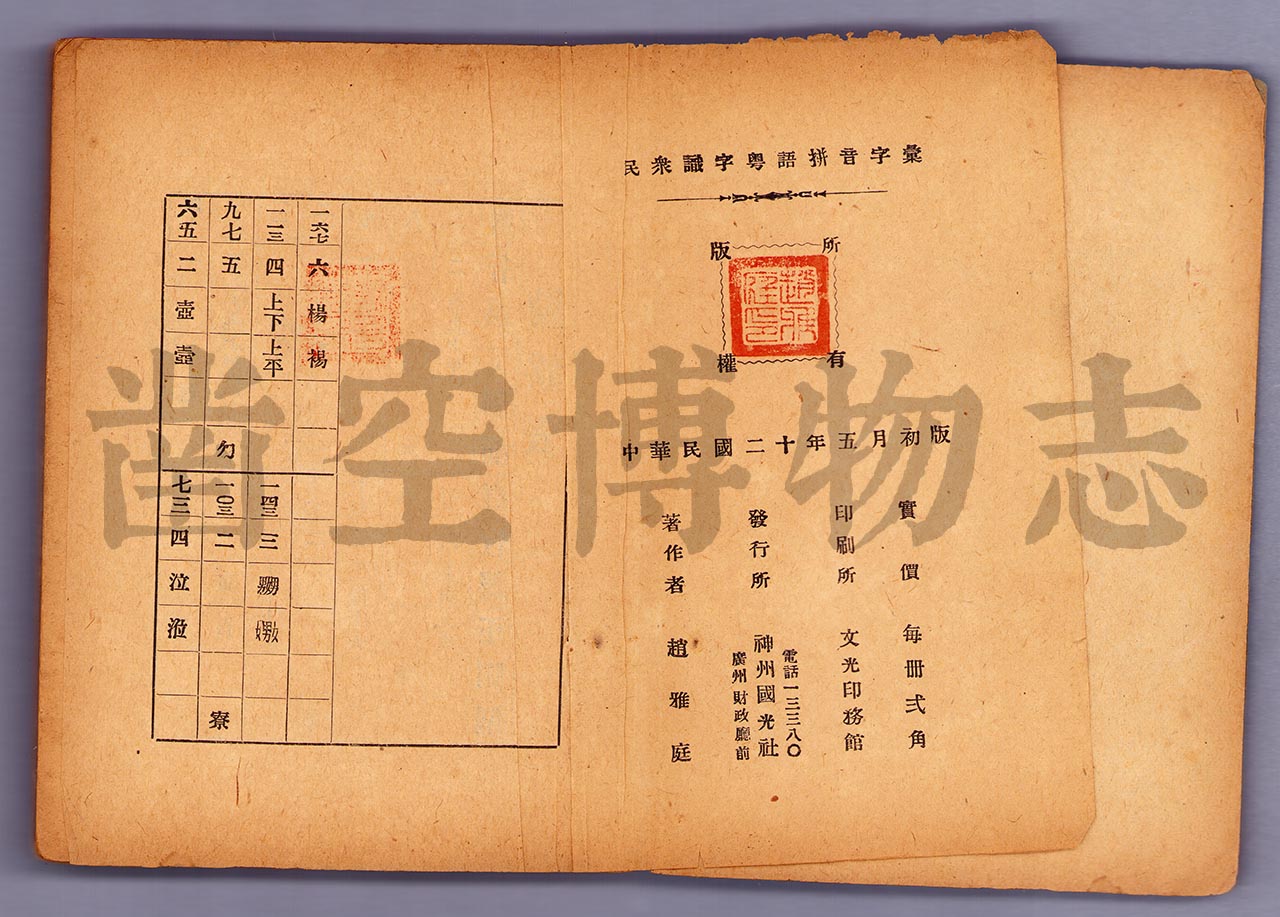 民衆識字粵語拼音字彙
版權所有
趙雅庭印
中華民國二十年五月初版
實價 每冊弍角
印刷所 文光印務館
電話一三三八〇
發行所 神州國光社
廣州財政廳前
著作者 趙雅庭
一六七 六 楊 裼
一一三 四 上下 上平
九七 五
六五 二 壺 壼
一四三 三
一〇三 二 寮
七三 四 泣
凿空博物志